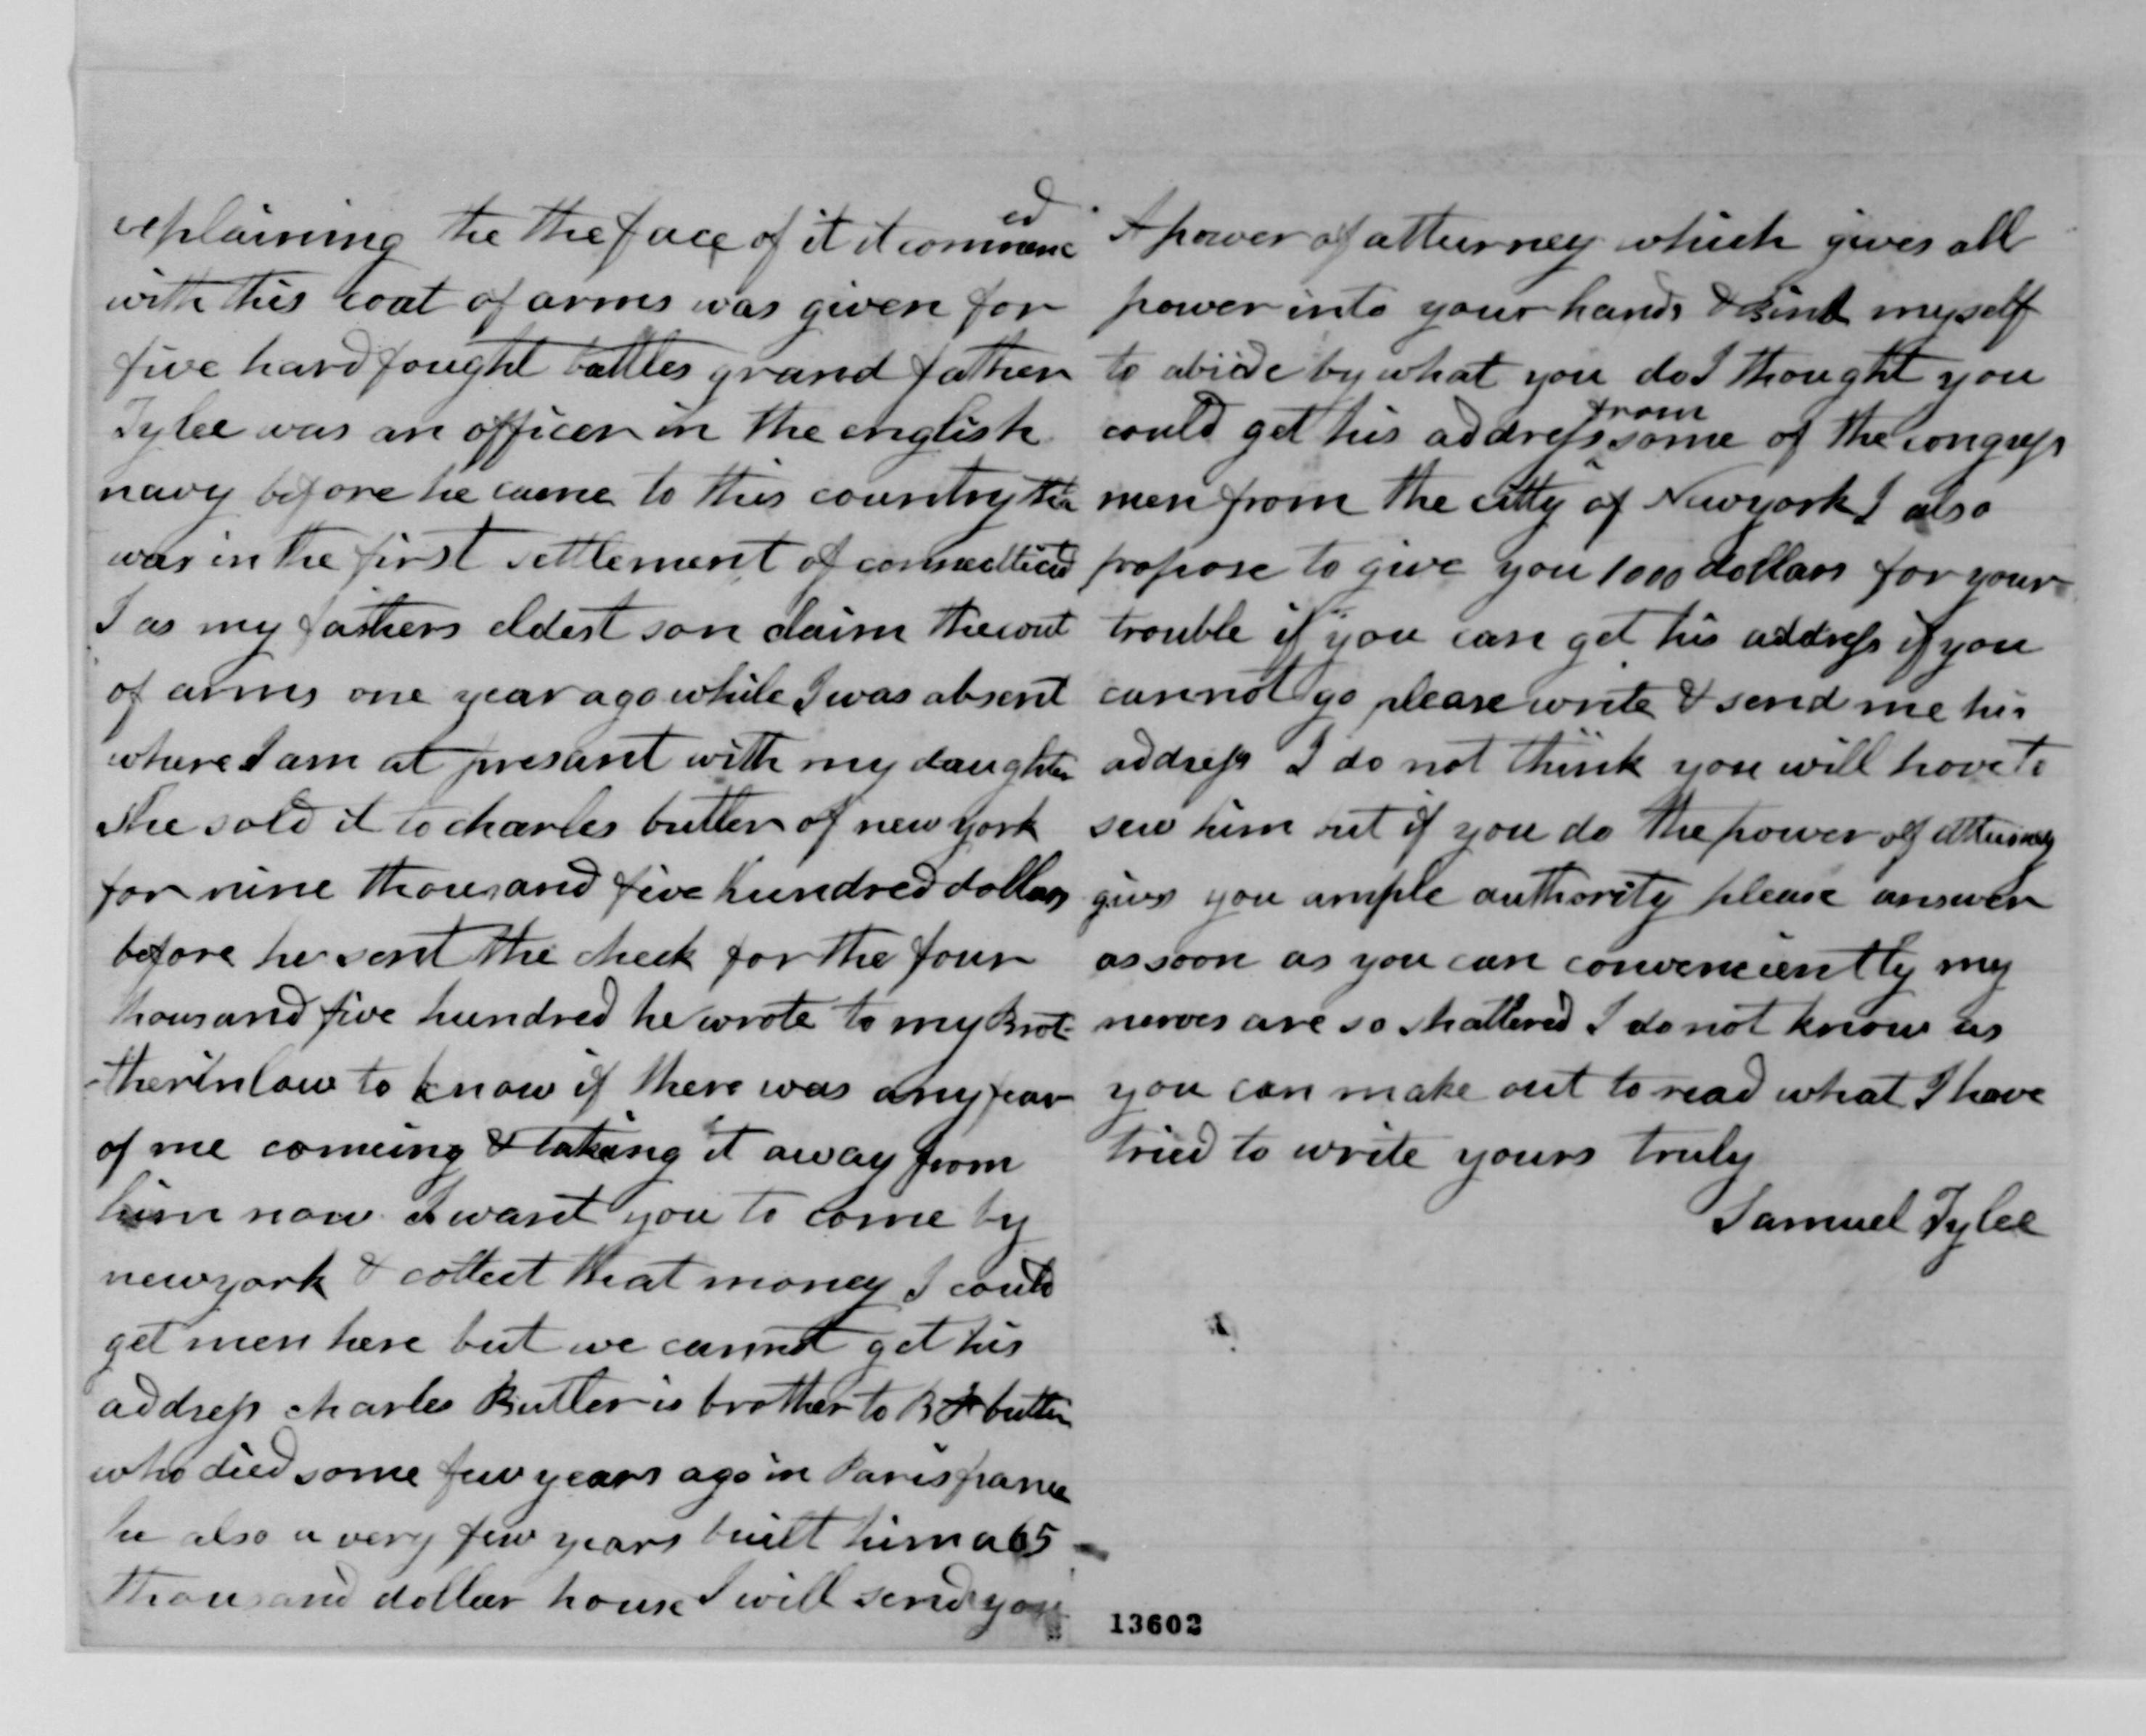 explaining the the face of it it commenc
ed
with this coat of arms was given for
five hard fought battles grand father
Tylee was an officer in the english
navy before he came to this country this
was in the first settlement of connecticut
I as my fathers eldest son claim the coat
of arms one year ago while I was absent
where I am at presant with my daughter
she sold it to charles butler of new york
for nine thousand five hundred dollars
before he sent the check for the four
thousand five hundred he wrote to my Brot-
-therinlaw to know if there was any fear
of me comeing & takeing it away from
him now I want you to come by
newyork & collect that money I could
get men here but we cannot get his
address charles Butler is brother to B F butler
who died some few years ago in Paris france
he also a very few years built him a 65
thousand dollar house I will send you
A power of atturney which gives all
power into your hands & bind myself
to abide by what you do I thought you
from
could get his address some of the congress
men from the citty of Newyork I also
propose to give you 1000 dollars for your
trouble if you can get his address if you
cannot go please write & send me his
address I do not think you will have to
sew him but if you do the power of atturney
gives you ample authority please answer
as soon as you can conveniently my
nerves are so shattered I do not know as
you can make out to read what I have
tried to write yours truly
Samuel Tylee
13602